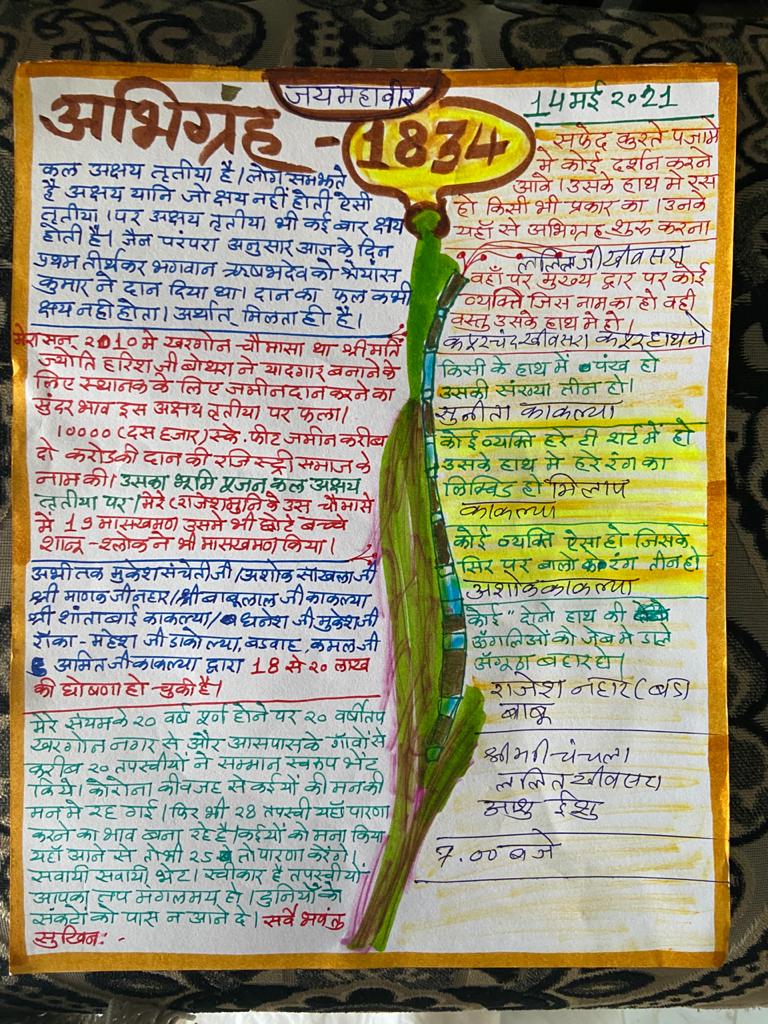 जय महावीर
अभिग्रह - 1834
14 मई २०२1
कल अक्षय तृतीया है। लोग समझते
है अक्षय यानि जो क्षय नहीं होती ऐसी
तृतीया। पर अक्षय तृतीया भी कई बार क्षय
होती है। जैन परंपरा अनुसार आज के दिन
प्रथम तीर्थंकर भगवान ऋषभदेव को श्रेयांस
कुमार ने दान दिया था। दान का फल कभी
क्षय नहीं होता। अर्थात् मिलता ही है।
मेरा सन् 2010 मे खरगोन चौमासा था श्रीमति
ज्योति हरिश जी बोथरा ने यादगार बनाने के
लिए स्थानक के लिए जमीन दान करने का
सुंदर भाव इस अक्षय तृतीया पर फला।
10000 (दस हजार) स्के. फीट जमीन करीब
दो करोड की दान की रजिस्ट्री समाज के
नाम की। उसका भूमि पूजन कल अक्षय
तृतीया पर। मेरे (राजेशमुनि के उस चौमासे
में 19 मासखमण उसमे भी छोटे बच्चे
शानू-श्लोक ने भी मासखमण किया।
अभी तक मुकेश संचेतीजी/अशोक सांखला जी
श्री माणक जी नहार/श्री बाबूलाल जी काकल्या
श्री शांताबाई काकल्या/धनेश जी मुकेशजी
रांका-महेश जी डाकोल्या, बडवाह, कमल जी
अमित जी काकल्या द्वारा 18 से २० लाख
की घोषणा हो चुकी है।
मेरे संयम के २० वर्ष पूर्ण होने पर २० वर्षीतप
खरगोन नगर से और आसपास के गाँवों से
करीब २० तपस्वीयों ने सम्मान स्वरूप भेंट
किये। कोरोना की वजह से कईयों की मन की
मन मे रह गई। फिर भी 28 तपस्वी यहाँ पारणा
करने का भाव बना रहे है। कईयों को मना किया
यहाँ आने से तो भी 25 तो पारणा करेंगे।
सवायी सवायी भेंट। स्वीकार है तपस्वीयो
आपका तप मंगलमय हो। दुनियाँ के
संकटों को पास न आने दे। सर्वे भवंतु
सुखिनः -
सफेद कुरते पजामे
मे कोई दर्शन करने
आवे। उसके हाथ मे रस
हो किसी भी प्रकार का। उनके
यहाँ से अभिग्रह शुरू करना
ललित जी खींवसरा
वहाँ पर मुख्य द्वार पर कोई
व्यक्ति जिस नाम का हो वही
वस्तु उसके हाथ मे हो।
कपूरचंद खींवसरा कपूर हाथ मे
किसी के हाथ में पंख हो
उसकी संख्या तीन हो।
सुनीता काकल्या
कोई व्यक्ति हरे टी शर्ट में हो
उसके हाथ मे हरे रंग का
लिक्विड हो मिलाप
काकल्या
कोई व्यक्ति ऐसा हो जिसके
सिर पर बालो के रंग तीन हो
अशोक काकल्या
कोई दोनो हाथ की
ऊँगलिओं को जेब मे डाले
अंगूठा बहार हो।
राजेश नहार (बडा
बाबू
श्रीमती चंचला
ललित खींवसरा
आशु ईशु
7.00 बजे